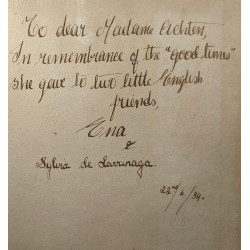 To dear Madame Achten,
In remembrance of the "good times"
she gave to two little English
friends,
Ena
&
Sylvia de Larrinaga.
22nd/6/34.